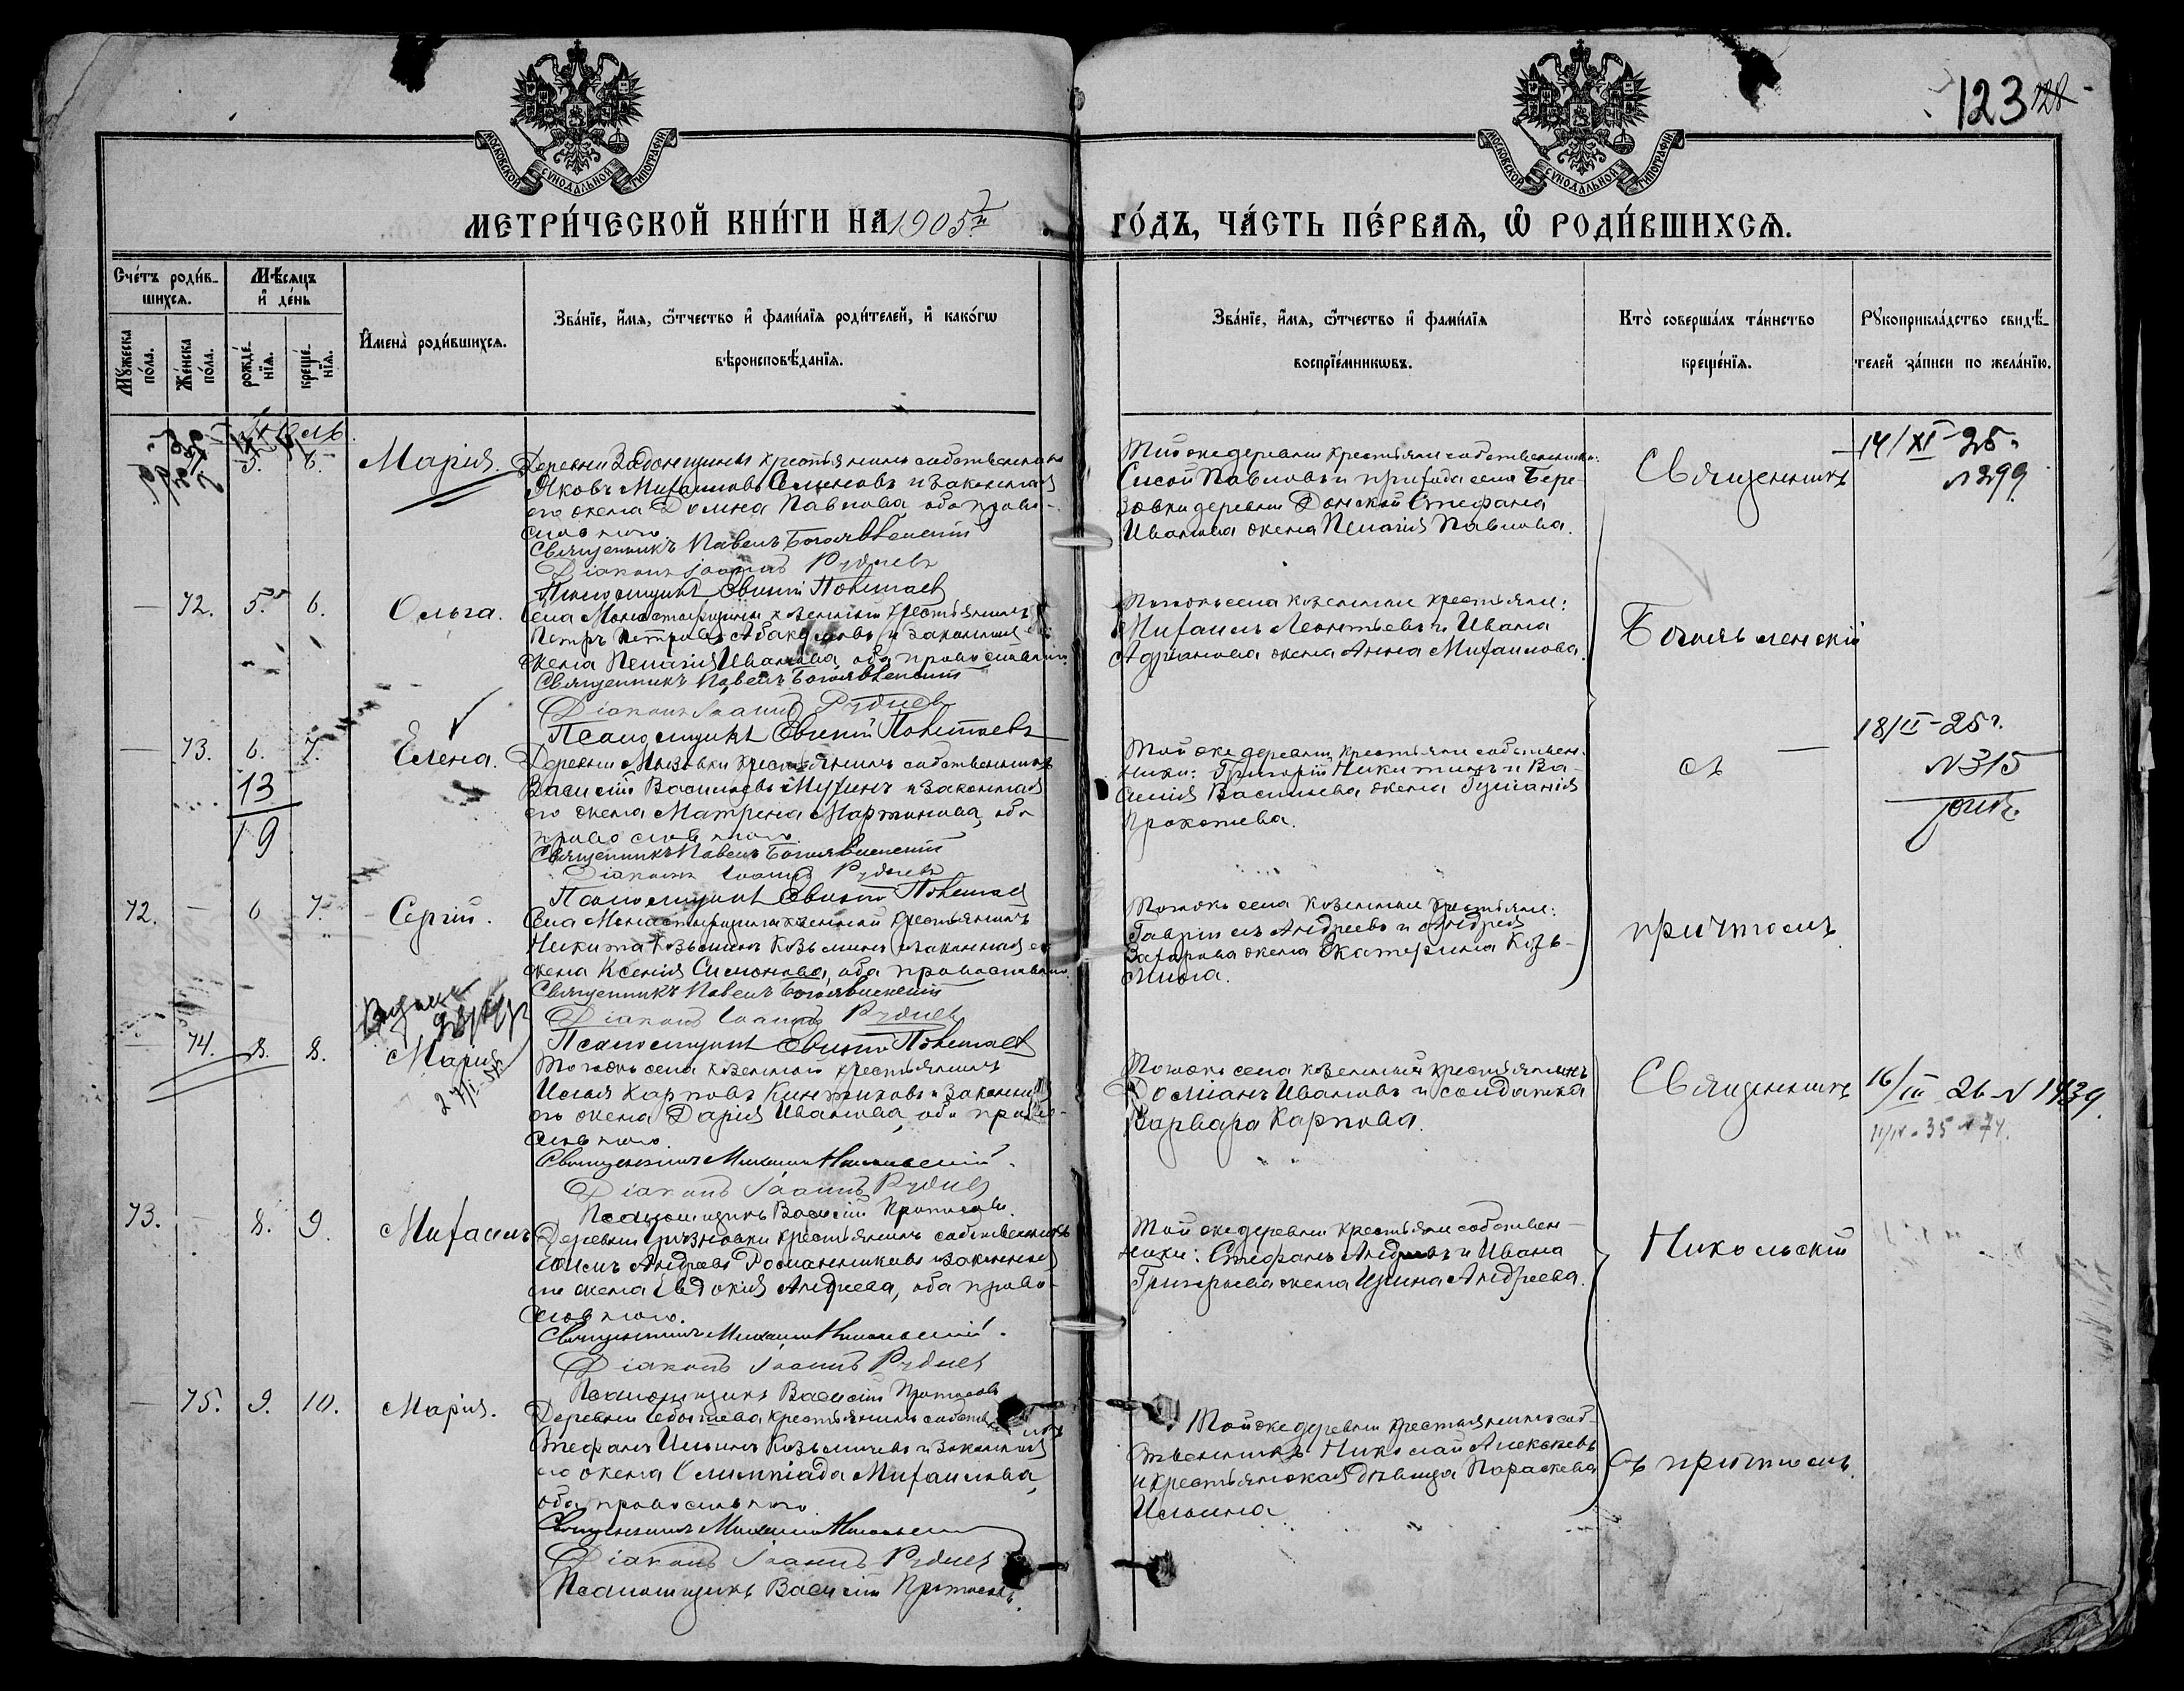 123 128
МОСКОВСКОЙ СУНОДАЛЬНОЙ ТИПОГРАФIИ
МОСКОВСКОЙ СУНОДАЛЬНОЙ ТИПОГРАФIИ
МЕТРИ́ЧЕСКОЙ КНИ́ГИ НА 1905й ГО́ДЪ, ЧА́СТЬ ПЕ́РВАѦ, Ѡ҆ РОДИ́ВШИХСѦ.
Сче́тъ роди́в-
шихсѧ.
Мѣ́сѧцъ
и҆ де́нь
Мꙋ́жеска
по́ла.
Же́нска
по́ла.
рожде́-
нїѧ.
креще́-
нїѧ.
И҆мена̀ роди́вшихсѧ.
Зва́нїе, и҆́мѧ, ѻ҆́тчество и҆ фами́лїѧ роди́телей, и҆ како́гѡ
вѣроисповѣ́данїѧ.
Зва́нїе, и҆́мѧ, ѻ҆́тчество и҆ фами́лїѧ
воспрїе́мникѡвъ.
Кто̀ соверша́лъ та́инство
креще́нїѧ.
Рꙋкоприкла́дство свидѣ́-
телей за́писи по жела́нїю.
Іюль.
5. 6. Марія.
Деревни Задонщины крестьянинъ собственникъ
Яковъ Михаиловъ Семеновъ и законная
его жена Домна Павлова, оба право-
славнаго.
Священникъ Павелъ Богоявленскій
Діаконъ Іоаннъ Рудневъ
Псаломщикъ
Той же деревни крестьяне собственники:
Сисой Павловъ и прихода села Бере-
зовки деревни Донской Стефана
Иванова жена Пелагія Павлова.
Священникъ
14/XI-25г
№ 299
— 72. 5. 6. Ольга.
Села Монастырщины казенный крестьянинъ
Петръ Петровъ Абакумовъ и законная его
жена Пелагія Иванова, оба православн.
Священникъ Павелъ Богоявленскій
Діаконъ Іоаннъ Рудневъ
Псаломщикъ
Того же села казенные крестьяне:
Михаилъ Леонтьевъ и Ивана
Адрианова жена Анна Михаилова.
Богоявленскій
— 73. 6. 7. Елена.
13
19
Деревни крестьянинъ собственникъ
Василій Васильевъ и законная
его жена Матрена Мартинова, оба
православнаго
Священникъ Павелъ Богоявленскій
Діаконъ Іоаннъ Рудневъ
Псаломщикъ
Той же деревни крестьяне собствен-
ники: Григорій Никитинъ и Ва-
силія Васильева жена
Прокофьева.
съ
18/II-25г.
№ 315
72. — 6 7. Сергій.
Села Монастырщины казенный крестьянинъ
Никита Козьминъ Козьминъ и законная его
жена Ксенія Симонова, оба православн.
Священникъ Павелъ Богоявленскій
Діаконъ Іоаннъ Рудневъ
Псаломщикъ
Того же села казенные крестьяне:
Гавріилъ Андреевъ и Андрея
Захарова жена Екатерина Козь-
мина.
причтомъ
— 74. 8. 8. Марія
Того же села казенный крестьянинъ
Илья Карповъ и законная
его жена Дарія Иванова, оба право-
славнаго.
Священникъ Михаилъ Никольскій.
Діаконъ Іоаннъ Рудневъ
Псаломщикъ Василій Протасовъ.
Того же села казенный крестьянинъ
Доміанъ Ивановъ и солдатка
Варвара Карпова.
Священникъ
16/III 26 № 1439.
73. — 8. 9. Михаилъ
Деревни Грязновки крестьянинъ собственникъ
Андреевъ Романенниковъ и законная
его жена Евдокія Андреева, оба право-
славнаго.
Священникъ Михаилъ Никольскій.
Діаконъ Іоаннъ Рудневъ
Псаломщикъ Василій Протасовъ
Той же деревни крестьяне собствен-
ники: Стефанъ Андреевъ и Ивана
Григорьева жена Ирина Андреева.
Никольскій
— 75. 9. 10. Марія.
Деревни крестьянинъ собственникъ
Стефанъ Ильинъ Козьмичевъ и законная
его жена Олимпіада Михаилова,
оба православнаго
Священникъ Михаилъ Никольскій
Діаконъ Іоаннъ Рудневъ
Псаломщикъ Василій Протасовъ.
Той же деревни крестьянинъ соб-
ственникъ Николай Алексѣевъ
и крестьянская дѣвица Параскева
Ильина
съ причтомъ.